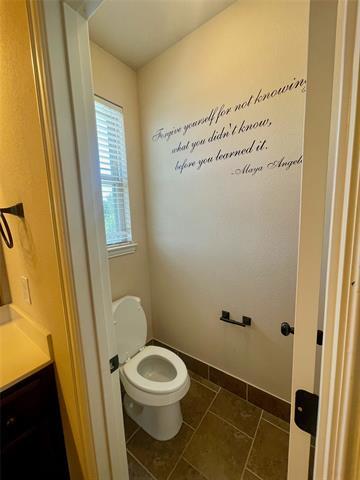 Forgive yourself for not knowing
what you didn't know,
before you learned it.
-Maya Angelo